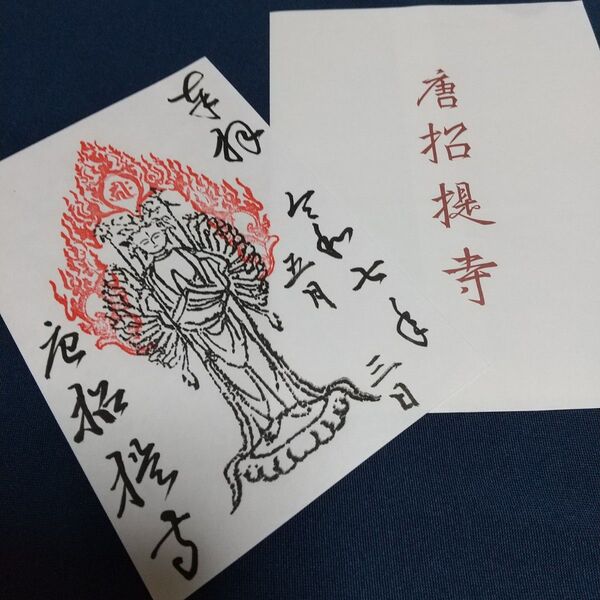 奉拝
令和七年
五月三日
唐招提寺
唐招提寺